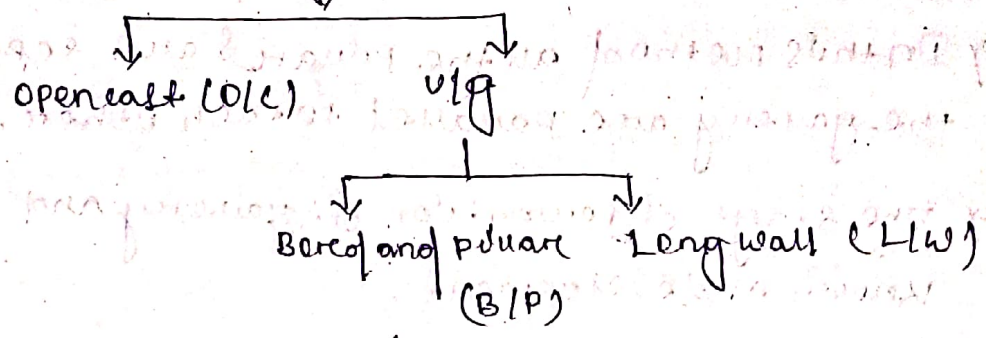 Opencast (O/C) U/g
Bored and pduare Longwall (L/W)
(B/P)